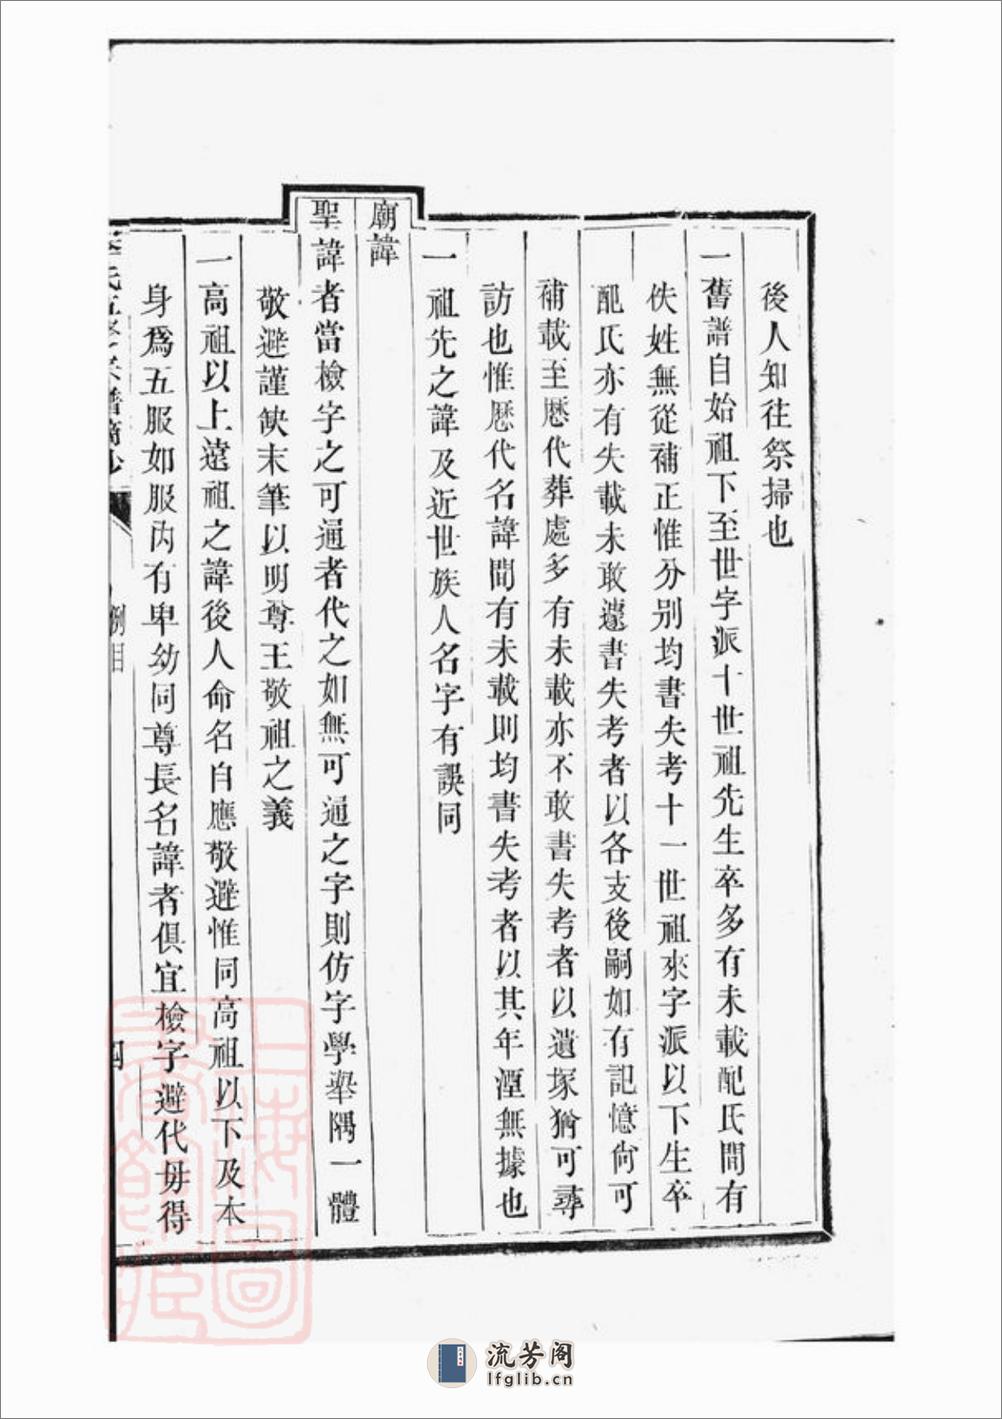 後人知往祭掃也
一舊譜自始祖下至世字派十世祖先生卒多有未載配氏間有
佚姓無從補正惟分別均書失考十一世祖來字派以下生卒
配氏亦有失載未敢遽書失考者以各支後嗣如有記憶尙可
補載至歷代葬處多有未載亦不敢書失考者以遺塚猶可尋
訪也惟歷代名諱間有未載則均書失考者以其年湮無據也
一祖先之諱及近世族人名字有誤同
廟諱
聖諱者當檢字之可通者代之如無可通之字則仿字學舉隅一體
敬避謹缺末筆以明尊王敬祖之義
一高祖以上遠祖之諱後人命名自應敬避惟同高祖以下及本
身爲五服如服內有卑幼同尊長名諱者俱宜檢字避代毋得
例目
四
上海圖書館藏
流芳阁
lfglib.cn